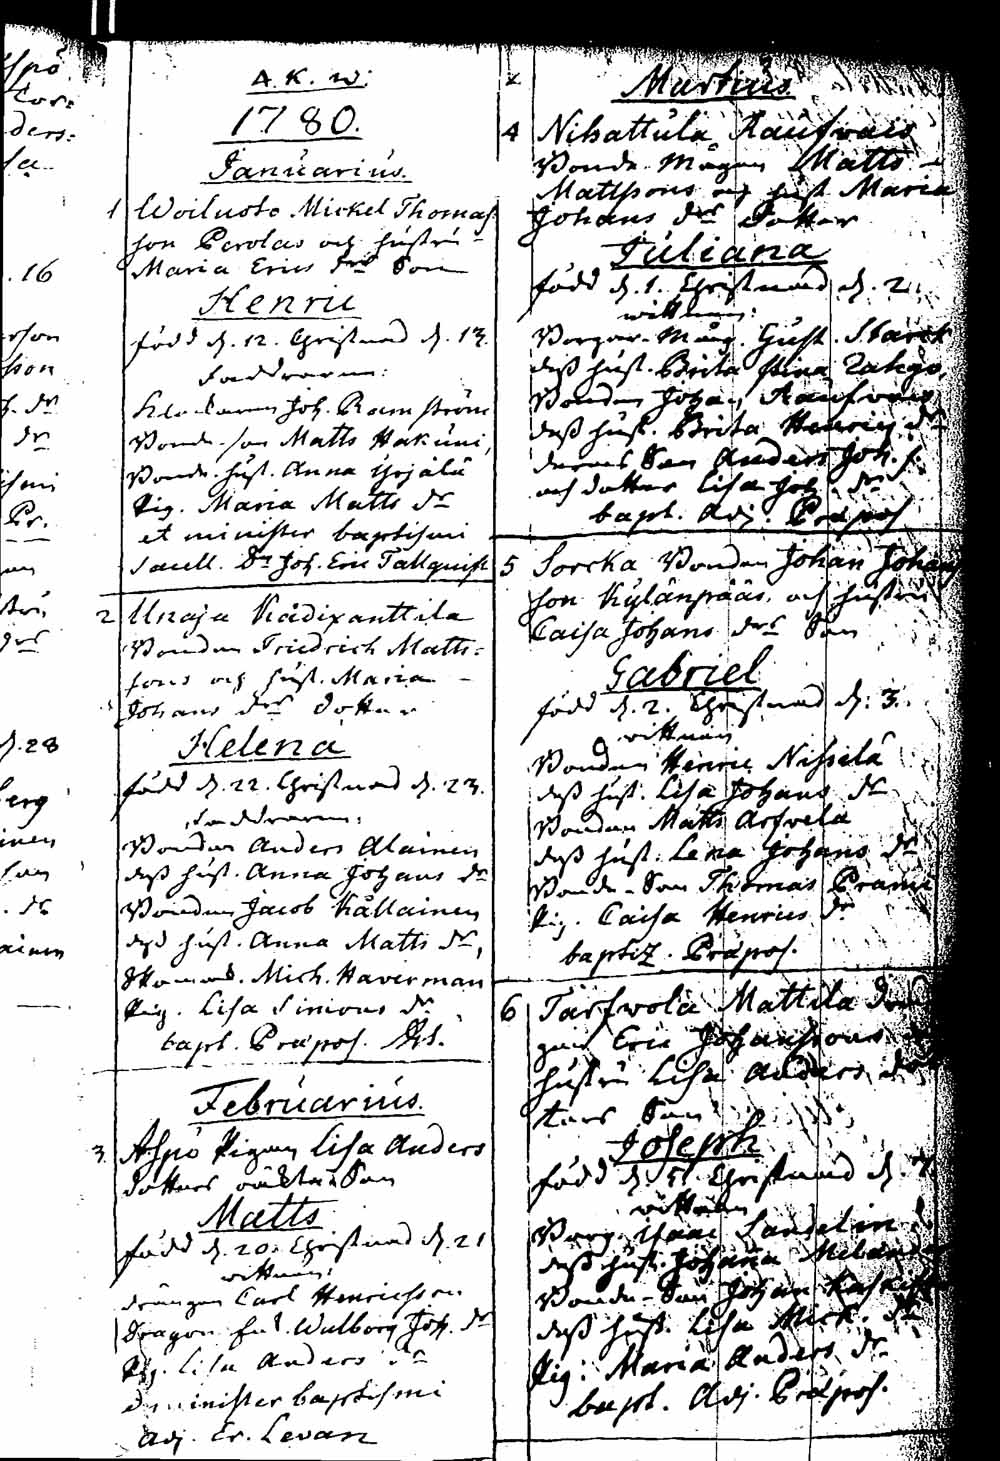 A. K. w:
1780.
Januarius.
1 Woiluoto Mickel Thomas
son Perolas och hustru
Maria Erics drs Son
Henric
född d. 12. Christnad d. 13.
Faddrarne:
Joh. Ramström
Bonde-son Matts Hakuni
Bonde-hust. Anna Yrjälä
Pig. Maria Matts dr
et minister baptismi
Sacell. Dn Joh. Eric Tallquist
2 Unaja Kådixanttila
Bonden Friedrich Matts-
sons och hust. Maria
Johans drs dotter
Helena
född d. 22. Christnad d. 23.
Faddrarne:
Bonden Anders Alainen
dess hust. Anna Johans dr
Bonden Jacob Kållainen
dess hust. Anna Matts dr,
Mich. Haverman
Pig. Lisa Simons dr
bapt. Præpos.
Februarius.
3. Aspö Pigan Lisa Anders
dotters oächta Son
Matts
född d. 20. Christnad d. 21
wittnen:
drängen Carl Henricsson
Dragon hust. Walborg Joh. dr
Pig. Lisa Anders dr
minister baptismi
Adj. Er. Levan
Martius.
4 Nihattula Raufwais
Bonde Mågen Matts
Mattssons och hust Maria
Johans drs dotter
Juliana
född d. 1. Christnad d. 2.
wittnen:
Borgar-Måg. Gust. Starck
dess hust. Brita Stina
Bonden Johan Raufwais
dess hust. Brita Henrics dr
deras Son Anders Joh. s.
och dotter Lisa Joh. dr
bapt. Adj. Præpos
5 Sorcka Bonden Johan Johans
son Kylänpääs. och hustru
Caisa Johans drs Son
Gabriel
född d. 2. Christnad d. 3.
wittnen
Bonden Henric Nissilä
dess hust. Lisa Johans dr
Bonden Matts Arfvela
dess hust. Lena Johans dr
Bonde-Son Thomas Prami
Pig. Caisa Henrics dr
baptiz. Præpos.
6 Tarfwola Mattila
Eric Johanssons
hustru Lisa Anders dot
ters Son
Joseph
född d. 5. Christnad d. 7
wittnen
Borg. Isaac Sandelin
dess hust. Johanna Melander
Bonde-Son Johan
dess hust. Lisa Mich. dr
Pig: Maria Anders dr
bapt. Adj. Præpos.
. 16
rson
sson
dr
d. 28
berg
ainen